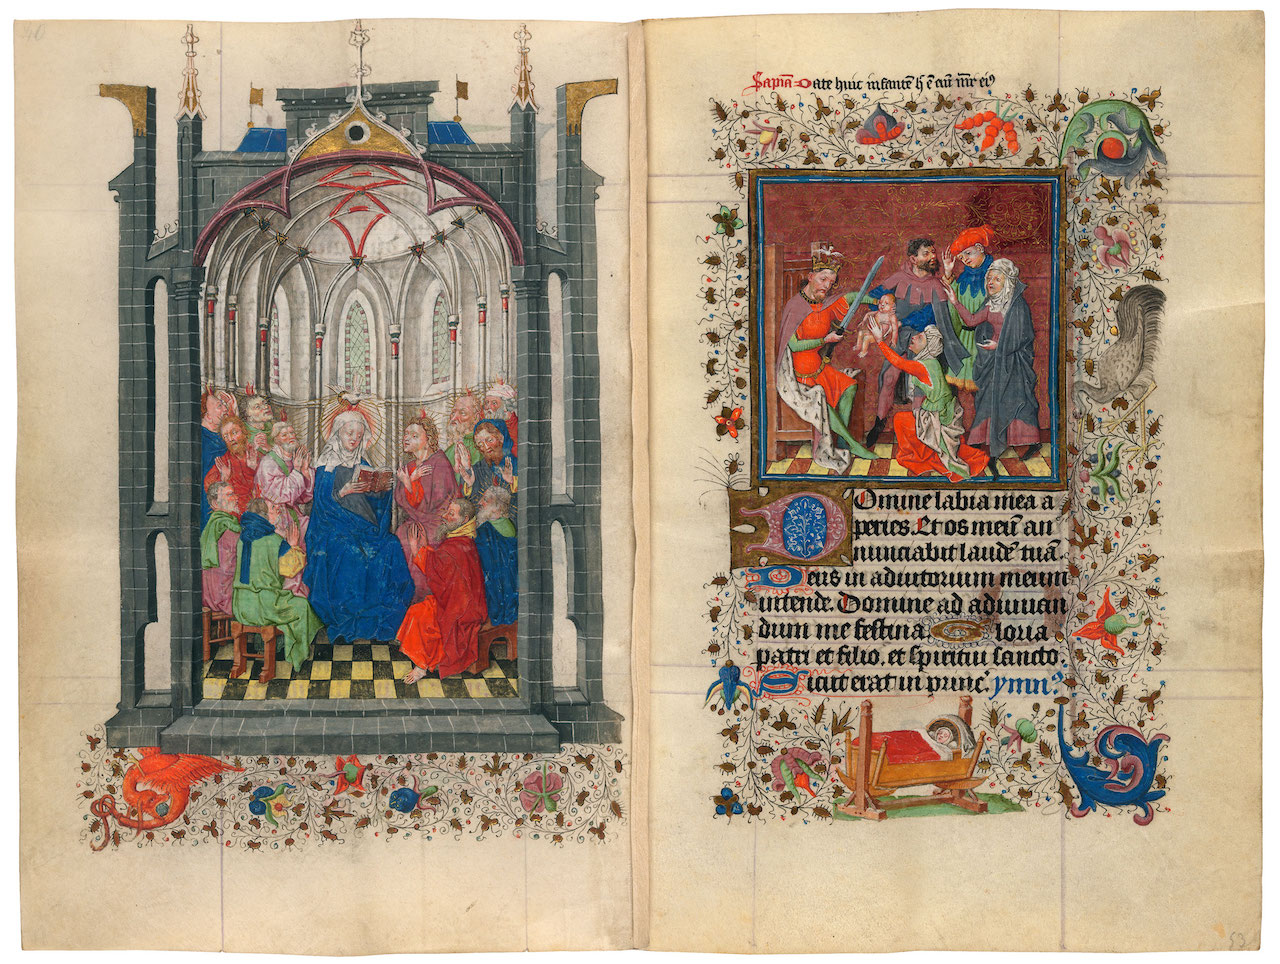 40
Sapiā Date huic infantē h̄ ē eui᷒ mr̄ ei᷒
Domine labia mea a
peries. Et os meū an
nunciabit laudē tuā.
Deus in adiutorium meum
intende. Domine ad adiuuan
dum me festina Gloria
patri et filio. et spiritui sancto.
Sicut erat in princ̄. ymn᷒
53